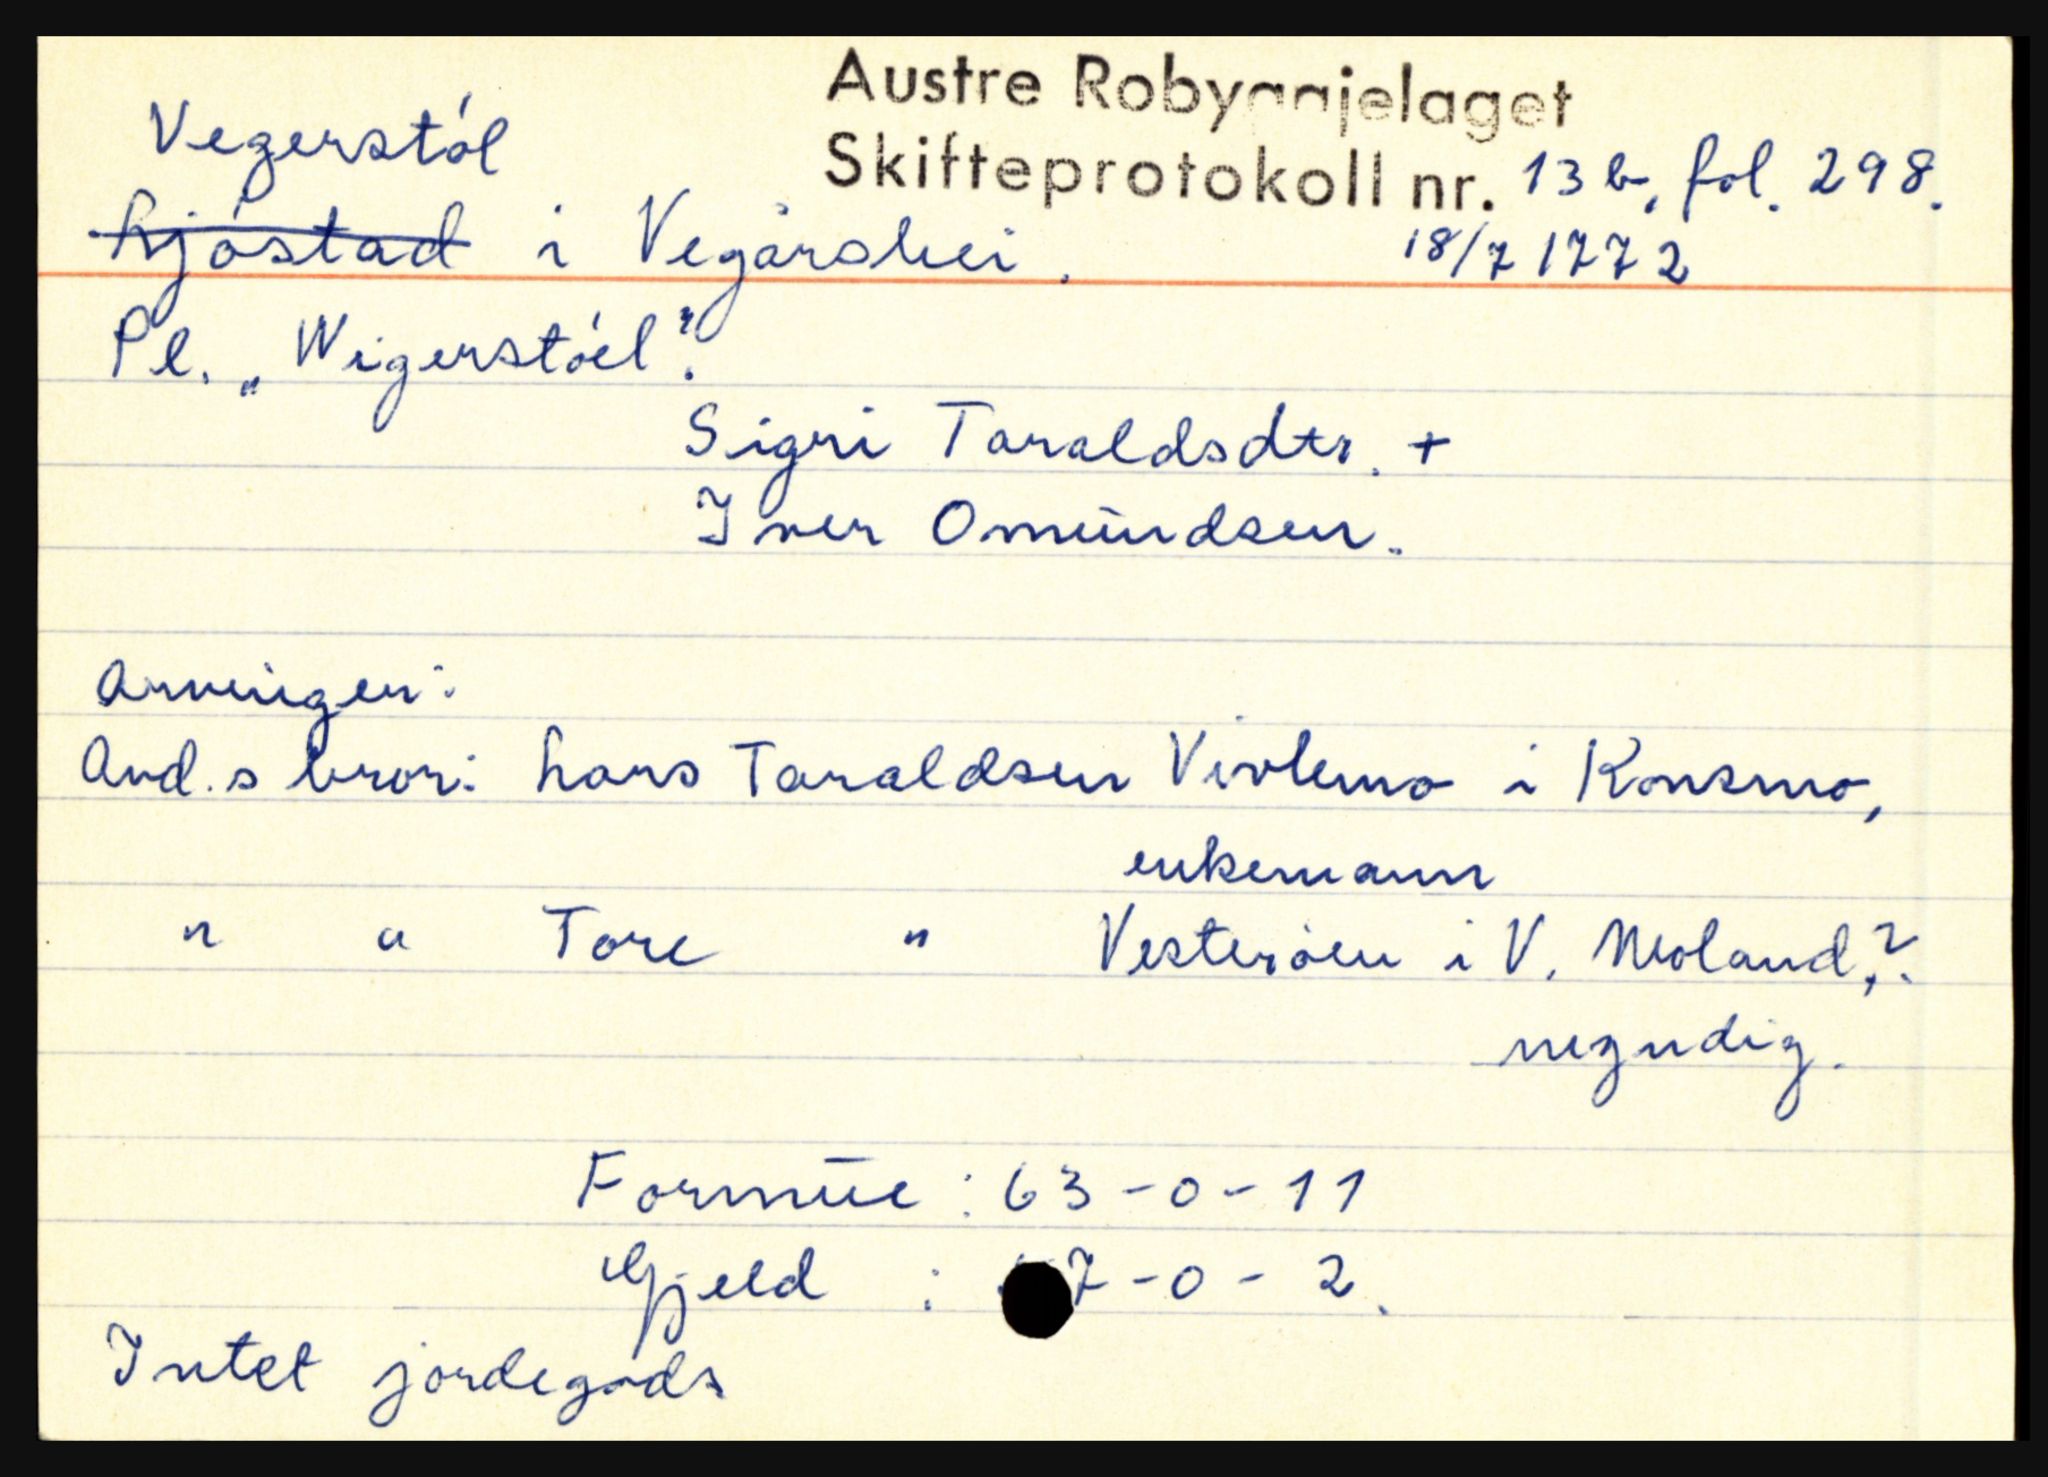 Austre Robyggjelaget
Vegerstól
Skifteprotokoll nr. 13 b, fol. 298.
Ljóstad i Vegårshei.
18/7 1772
Pl. „Weigerstóel"?
Sigri Taraldsdtr. +
Iver Omūndsen.
Arvinger:
Avd.s bror: Lars Taraldsen Vivlemo i Konsmo,
enkemann
" " Tore " Vesterøen i V. Moland,?
myndig.
Formūe: 63-0-11
Gjeld : 7-0-2.
Intet jordegods